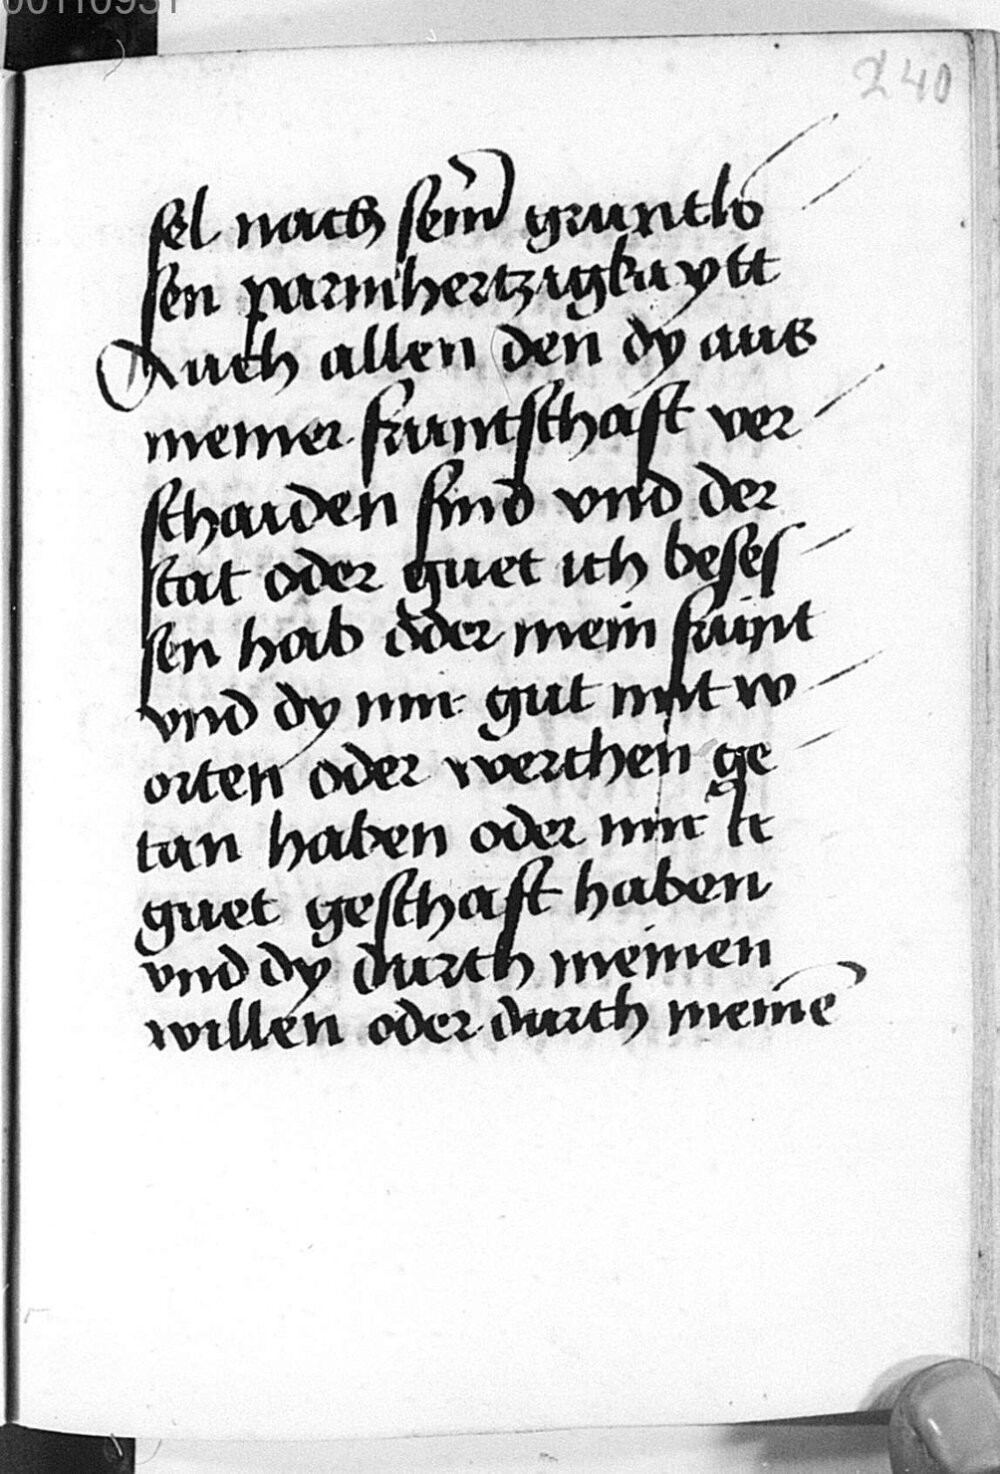 00110931
240
sel nach seim̄ gruntlo
sen parmhertzigkaytt
Auch allen den dy aus
meiner fruntschaft ver
schaiden sind vnd der
stat oder guet ich beses
sen hab oder mein fruint
vnd dy mir gut mit w
orten oder werchen ge
tan haben oder mir ir
guet geschaft haben
vnd dy durch meinen
willen oder durch meinē